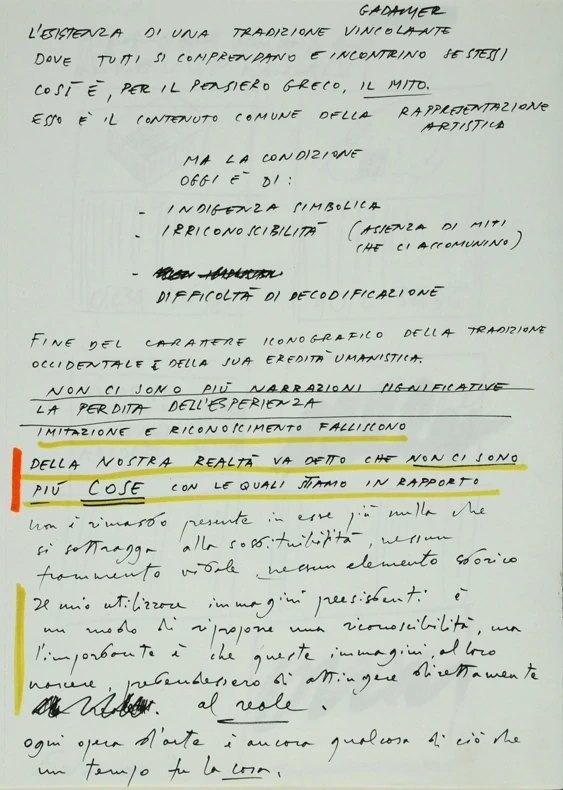 GADAMER
L'ESISTENZA DI UNA TRADIZIONE VINCOLANTE
DOVE TUTTI SI COMPRENDANO E INCONTRINO SE STESSI
COSÌ È, PER IL PENSIERO GRECO, IL MITO.
ESSO È IL CONTENUTO COMUNE DELLA RAPPRESENTAZIONE
ARTISTICA
MA LA CONDIZIONE
OGGI È DI:
- INDIGENZA SIMBOLICA
- IRRICONOSCIBILITÀ (ASSENZA DI MITI
CHE CI ACCOMUNINO)
-
DIFFICOLTÀ DI DECODIFICAZIONE
FINE DEL CARATTERE ICONOGRAFICO DELLA TRADIZIONE
OCCIDENTALE E DELLA SUA EREDITÀ UMANISTICA.
NON CI SONO PIÙ NARRAZIONI SIGNIFICATIVE
LA PERDITA DELL'ESPERIENZA
IMITAZIONE E RICONOSCIMENTO FALLISCONO
DELLA NOSTRA REALTÀ VA DETTO CHE NON CI SONO
PIÙ COSE CON LE QUALI STIAMO IN RAPPORTO
non è rimasto presente in esse più nulla che
si sottragga alla sostituibilità, nessun
frammento vitale nessun elemento storico
Il mio utilizzare immagini preesistenti è
un modo di riproporre una riconoscibilità, ma
l'importante è che queste immagini, al loro
nascere, pretendessero di attingere direttamente
al reale.
ogni opera d'arte è ancora qualcosa di ciò che
un tempo fu la cosa.